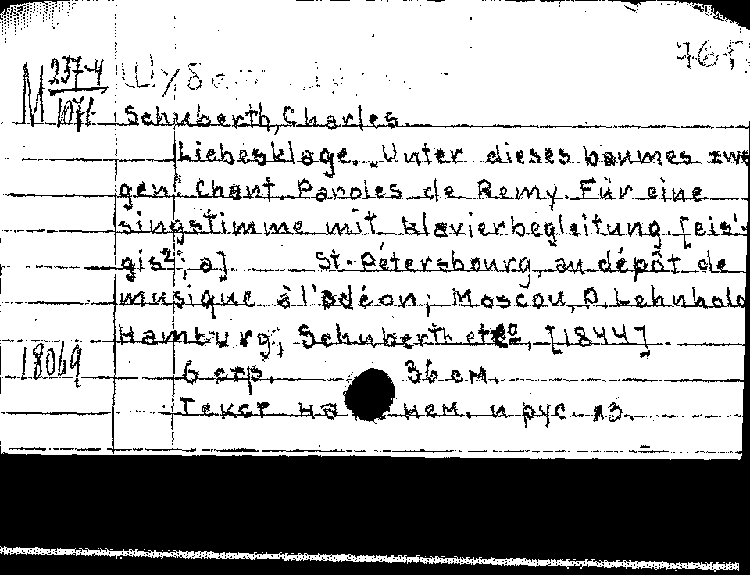 765
М 237-4
1071
Schuberth, Charles.
Liebesklage. „Unter dieses baumes zwe
gen". Chant. Paroles de Remy. Für eine
singstimme mit klavierbegleitung. [eis'-
gis²; a]. St.-Pétersbourg, au dépôt de
musique à l'odéon; Moscou, P. Lehnhold
Hamburg; Schuberth etco, [1844]
18069
6 стр. 36 см.
Текст на нем. и рус. яз.